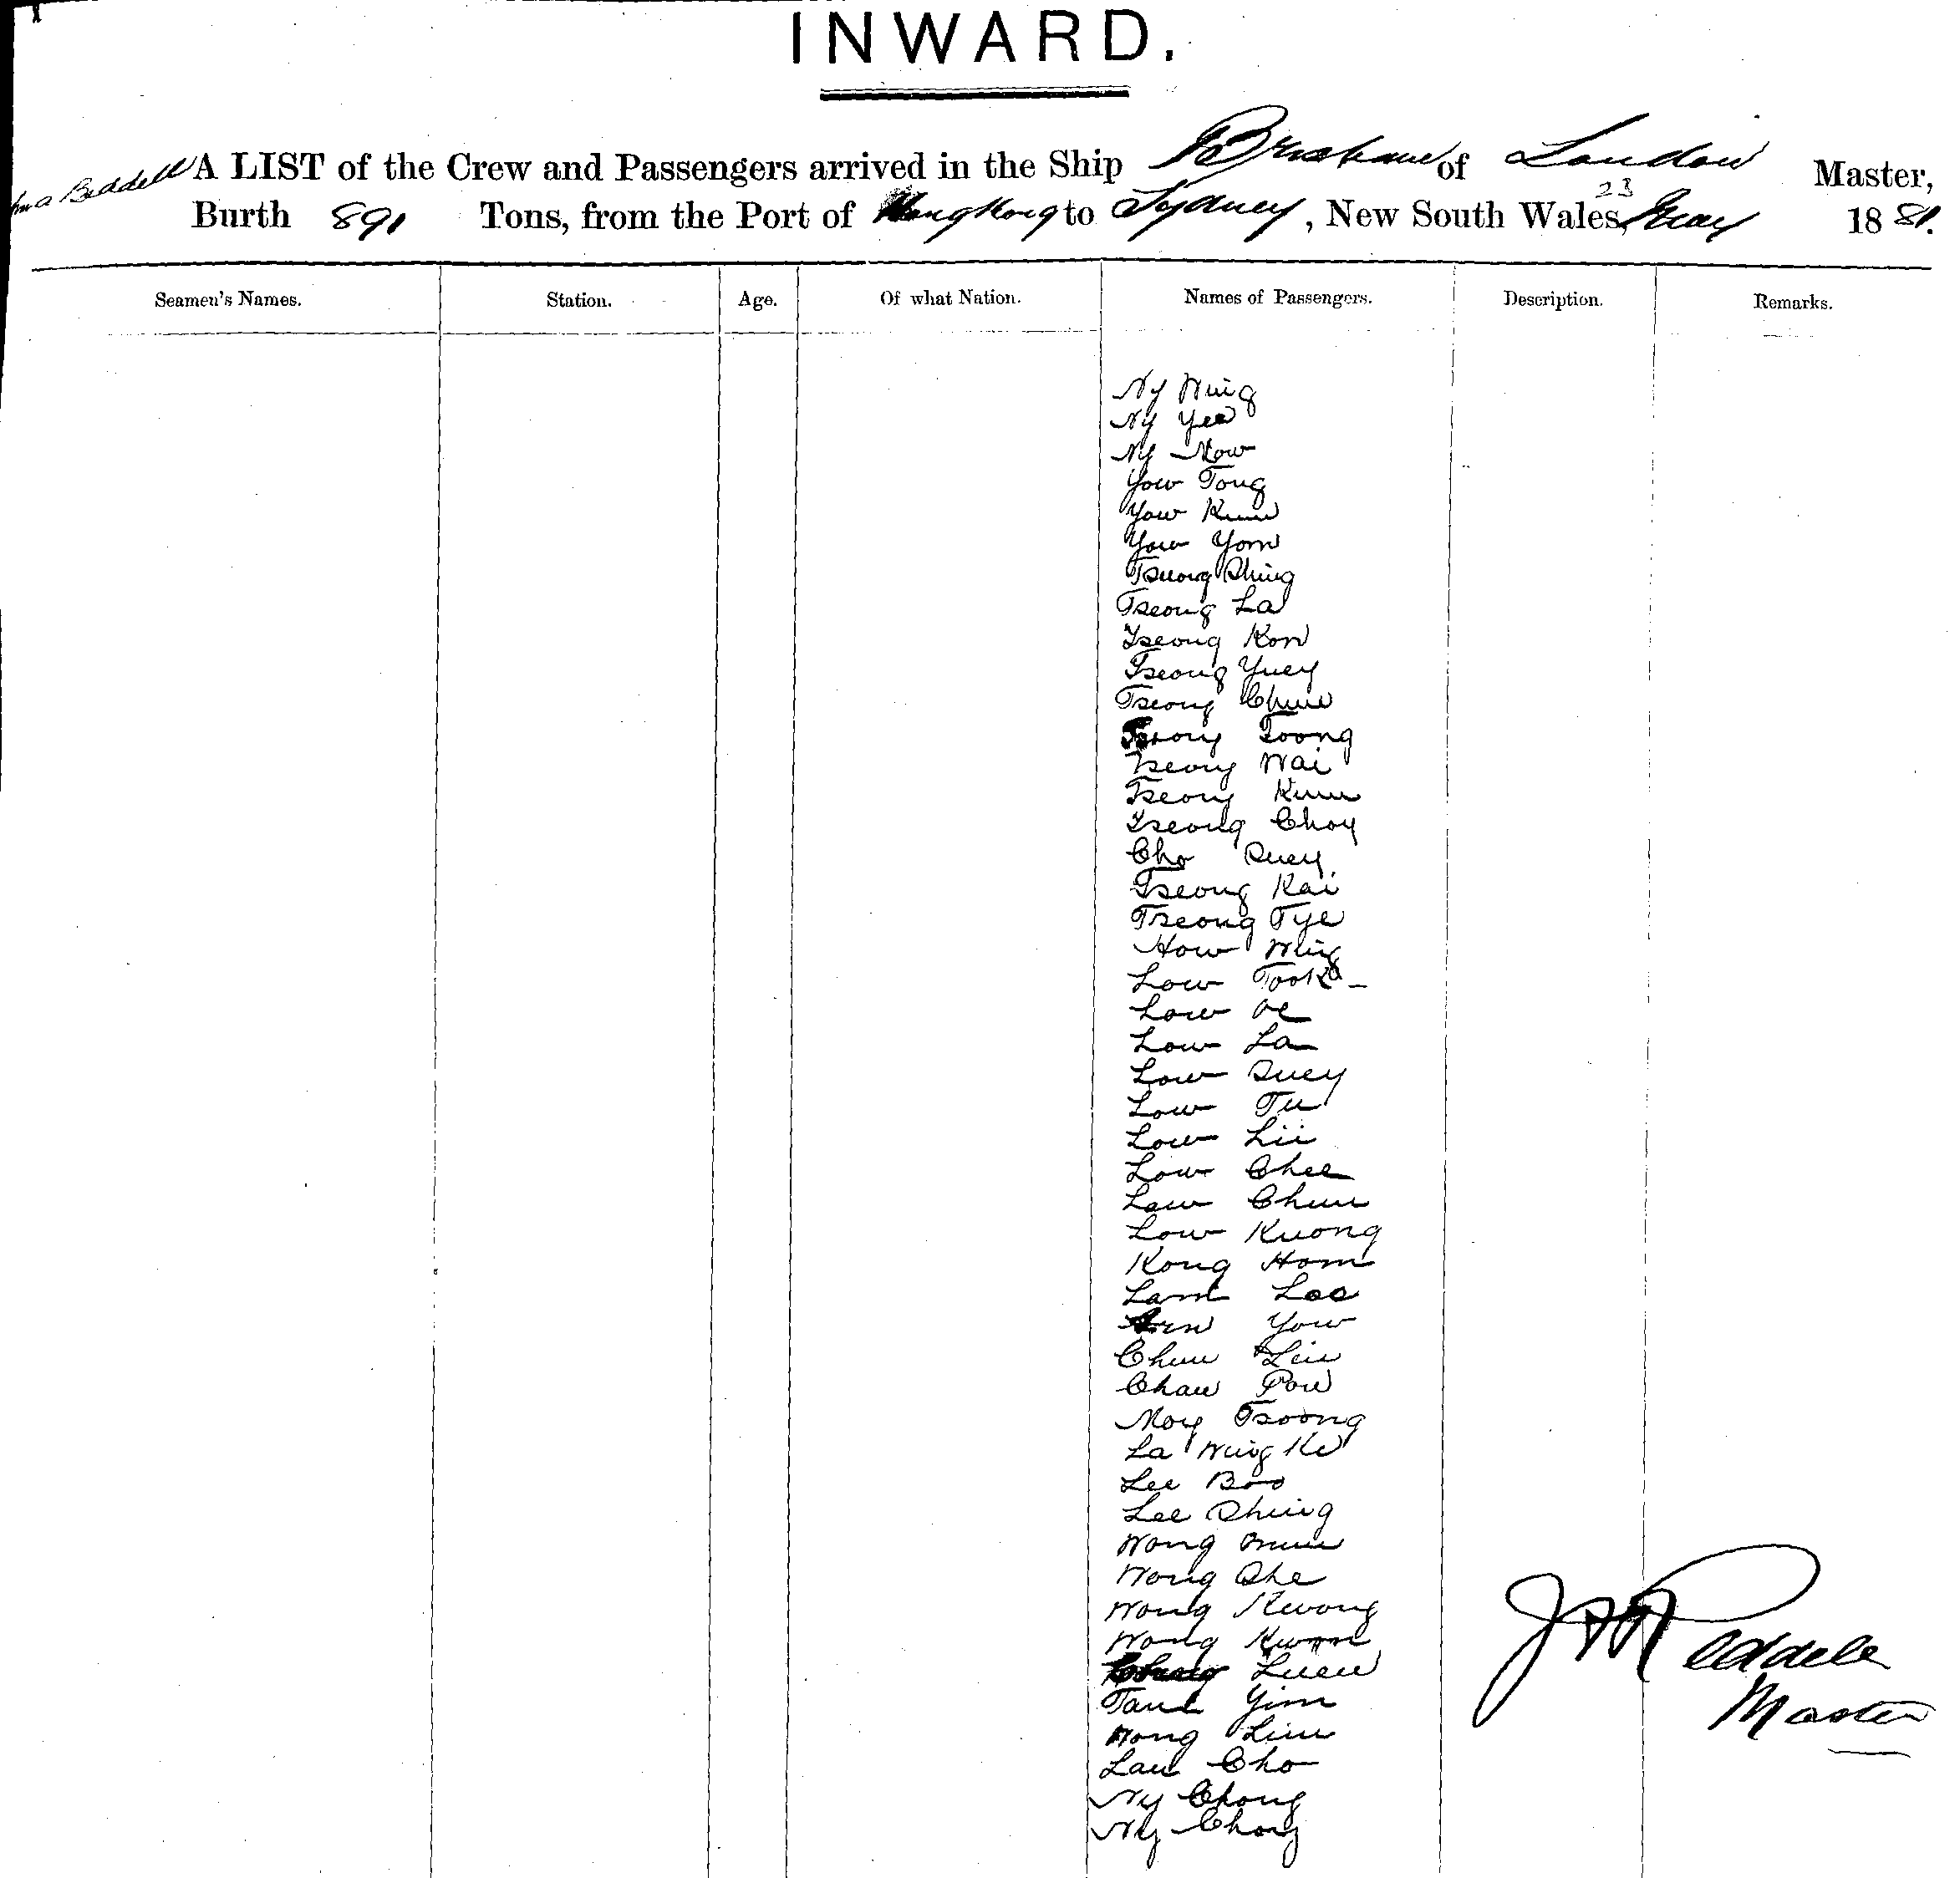 INWARD.
A LIST of the Crew and Passengers arrived in the Ship Brisbane of London Master,
Burth 891 Tons, from the Port of Hong Kong to Sydney, New South Wales, 23 May 1881.
Seamen's Names. Station. Age. Of what Nation. Names of Passengers. Description. Remarks.
Ny Wing
Ny Yee
Ny Now
Yow Tong
Yow Kum
Yow Yom
Tseong Shing
Tseong La
Tseong Kon
Tseong Yuey
Tseong Chun
Tseong Toong
Tseong Wai
Tseong Kum
Tseong Choy
Cho Suey
Tseong Kai
Tseong Tye
How Wing
Low Took
Low
Low La
Low Suey
Low Tu
Low Lii
Low Chee
Low Chun
Low Kuong
Kong Hom
Lam Loo
Yow
Chun Lin
Chau Pow
Moy Tsoong
La Wing Ke
Lee Boo
Lee Shing
Wong
Wong She
Wong Kwong
Wong Kwon
Luen
Yim
Wong Lim
Lau Cho
Ny Chong
Ny Chong
Master